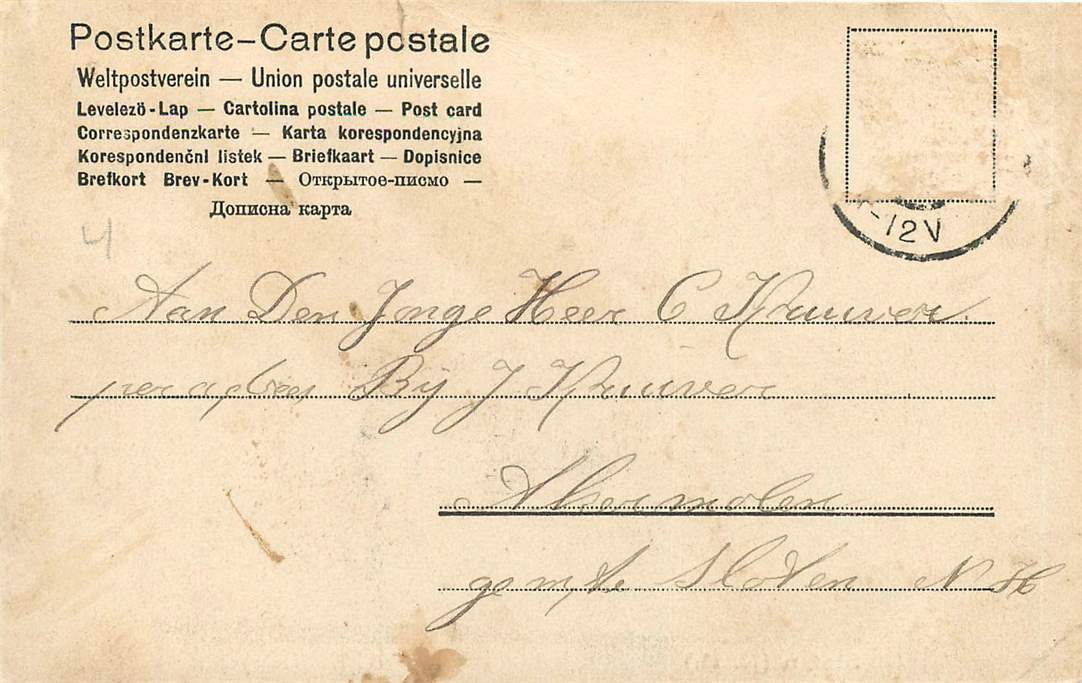 Postkarte–Carte postale
Weltpostverein — Union postale universelle
Levelezö-Lap — Cartolina postale — Post card
Correspondenzkarte — Karta korespondencyjna
Korespondenční listek — Briefkaart — Dopisnice
Brefkort Brev-Kort — Открытое-письмо —
Дописна карта
4
-12V
Aan Den Jonge Heer C Kruuver.
per adres Bij J Kruuver
Akermolen
gemte Sloten N H